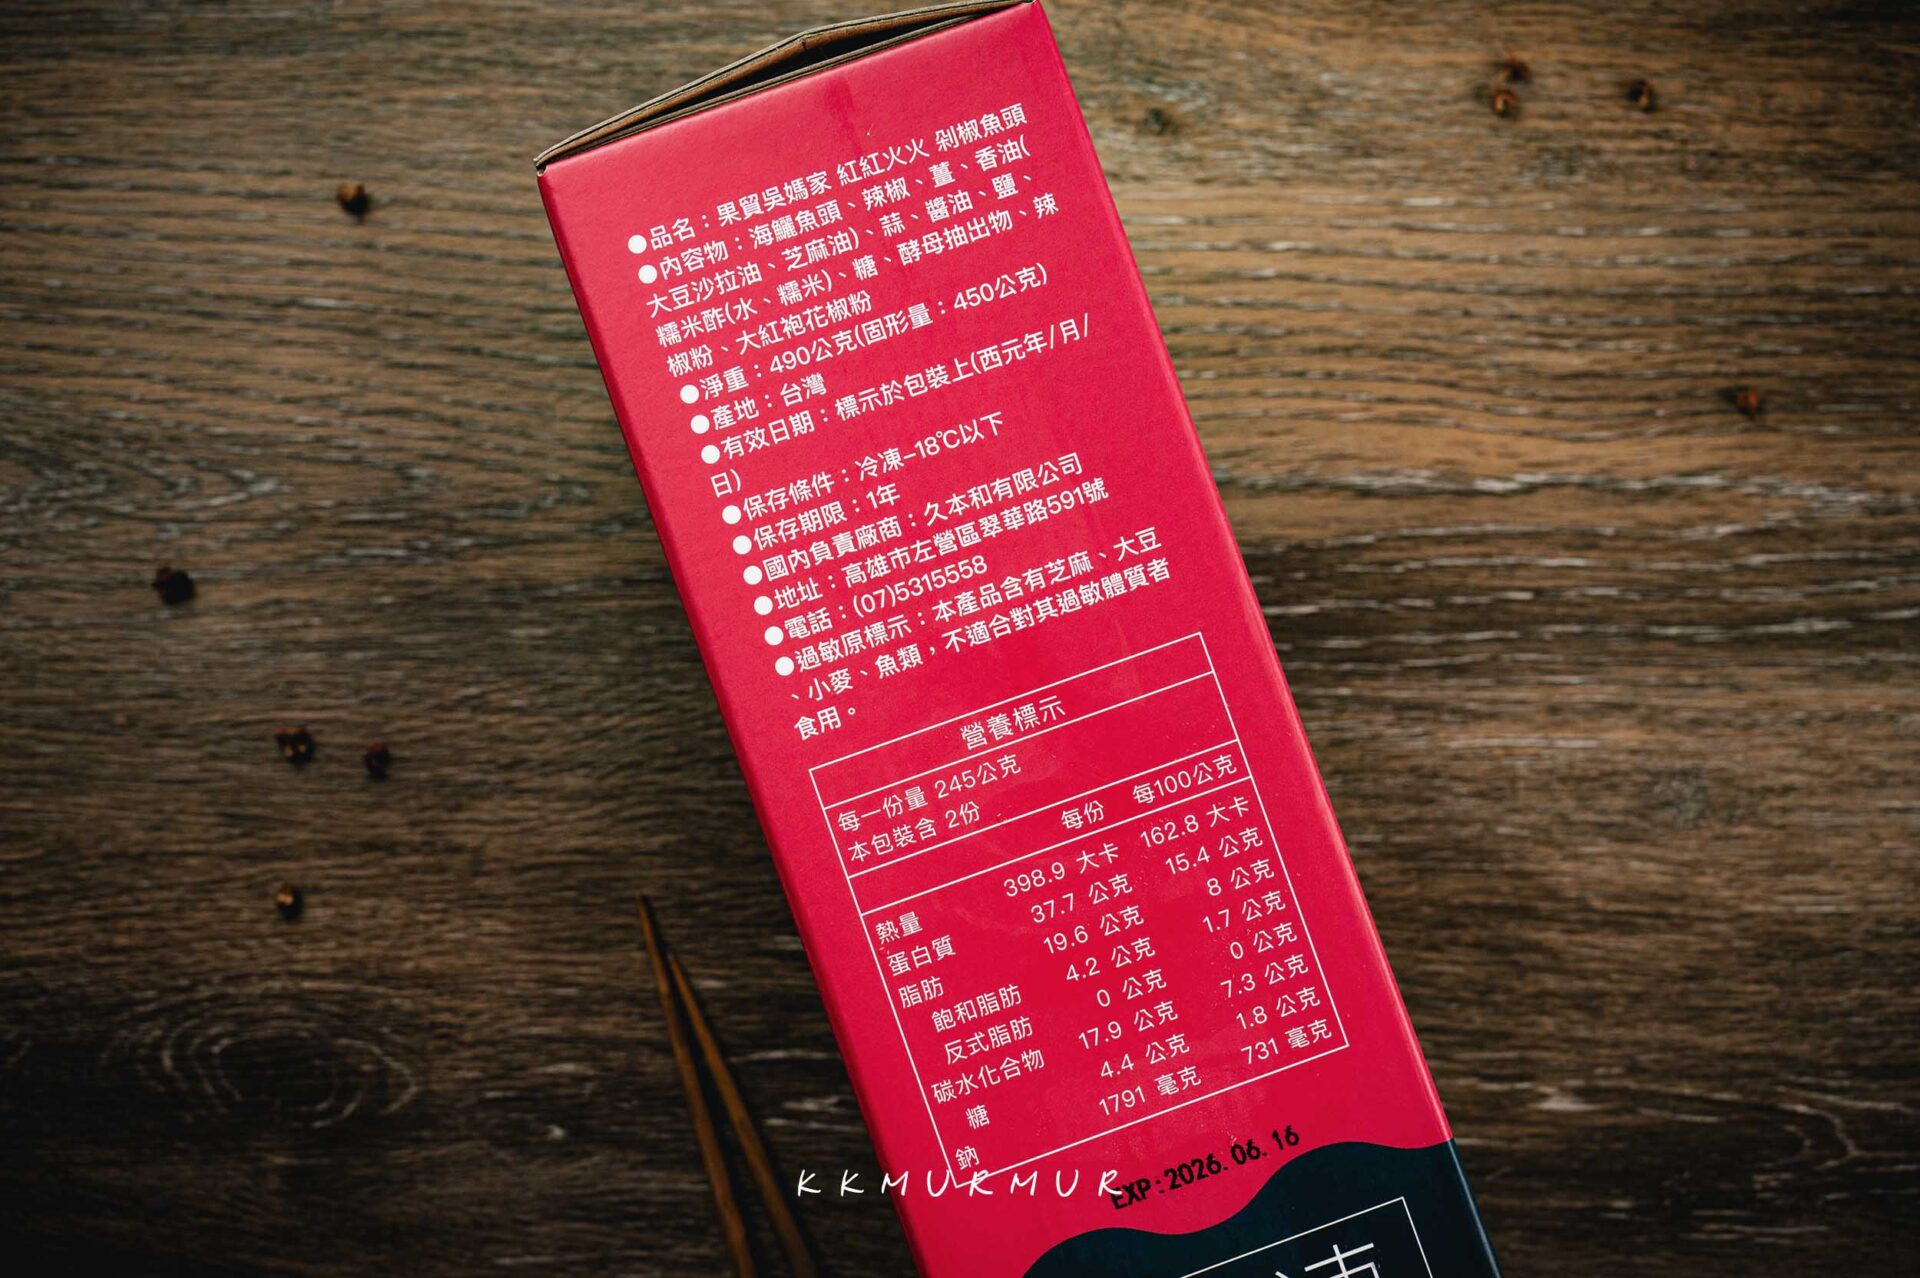 ●品名：果貿吳媽家 紅紅火火 剁椒魚頭
●內容物：海鱺魚頭、辣椒、薑、香油(
大豆沙拉油、芝麻油)、蒜、醬油、鹽、
糯米酢(水、糯米)、糖、酵母抽出物、辣
椒粉、大紅袍花椒粉
●淨重：490公克(固形量：450公克)
●產地：台灣
●有效日期：標示於包裝上(西元年/月/
日)
●保存條件：冷凍-18℃以下
●保存期限：1年
●國內負責廠商：久本和有限公司
●地址：高雄市左營區翠華路591號
●電話：(07)5315558
●過敏原標示：本產品含有芝麻、大豆
、小麥、魚類，不適合對其過敏體質者
食用。
營養標示
每一份量 245公克
本包裝含 2份
每份 每100公克
熱量 398.9 大卡 162.8 大卡
蛋白質 37.7 公克 15.4 公克
脂肪 19.6 公克 8 公克
飽和脂肪 4.2 公克 1.7 公克
反式脂肪 0 公克 0 公克
碳水化合物 17.9 公克 7.3 公克
糖 4.4 公克 1.8 公克
鈉 1791 毫克 731 毫克
EXP:2026.06.16
KKMURMUR